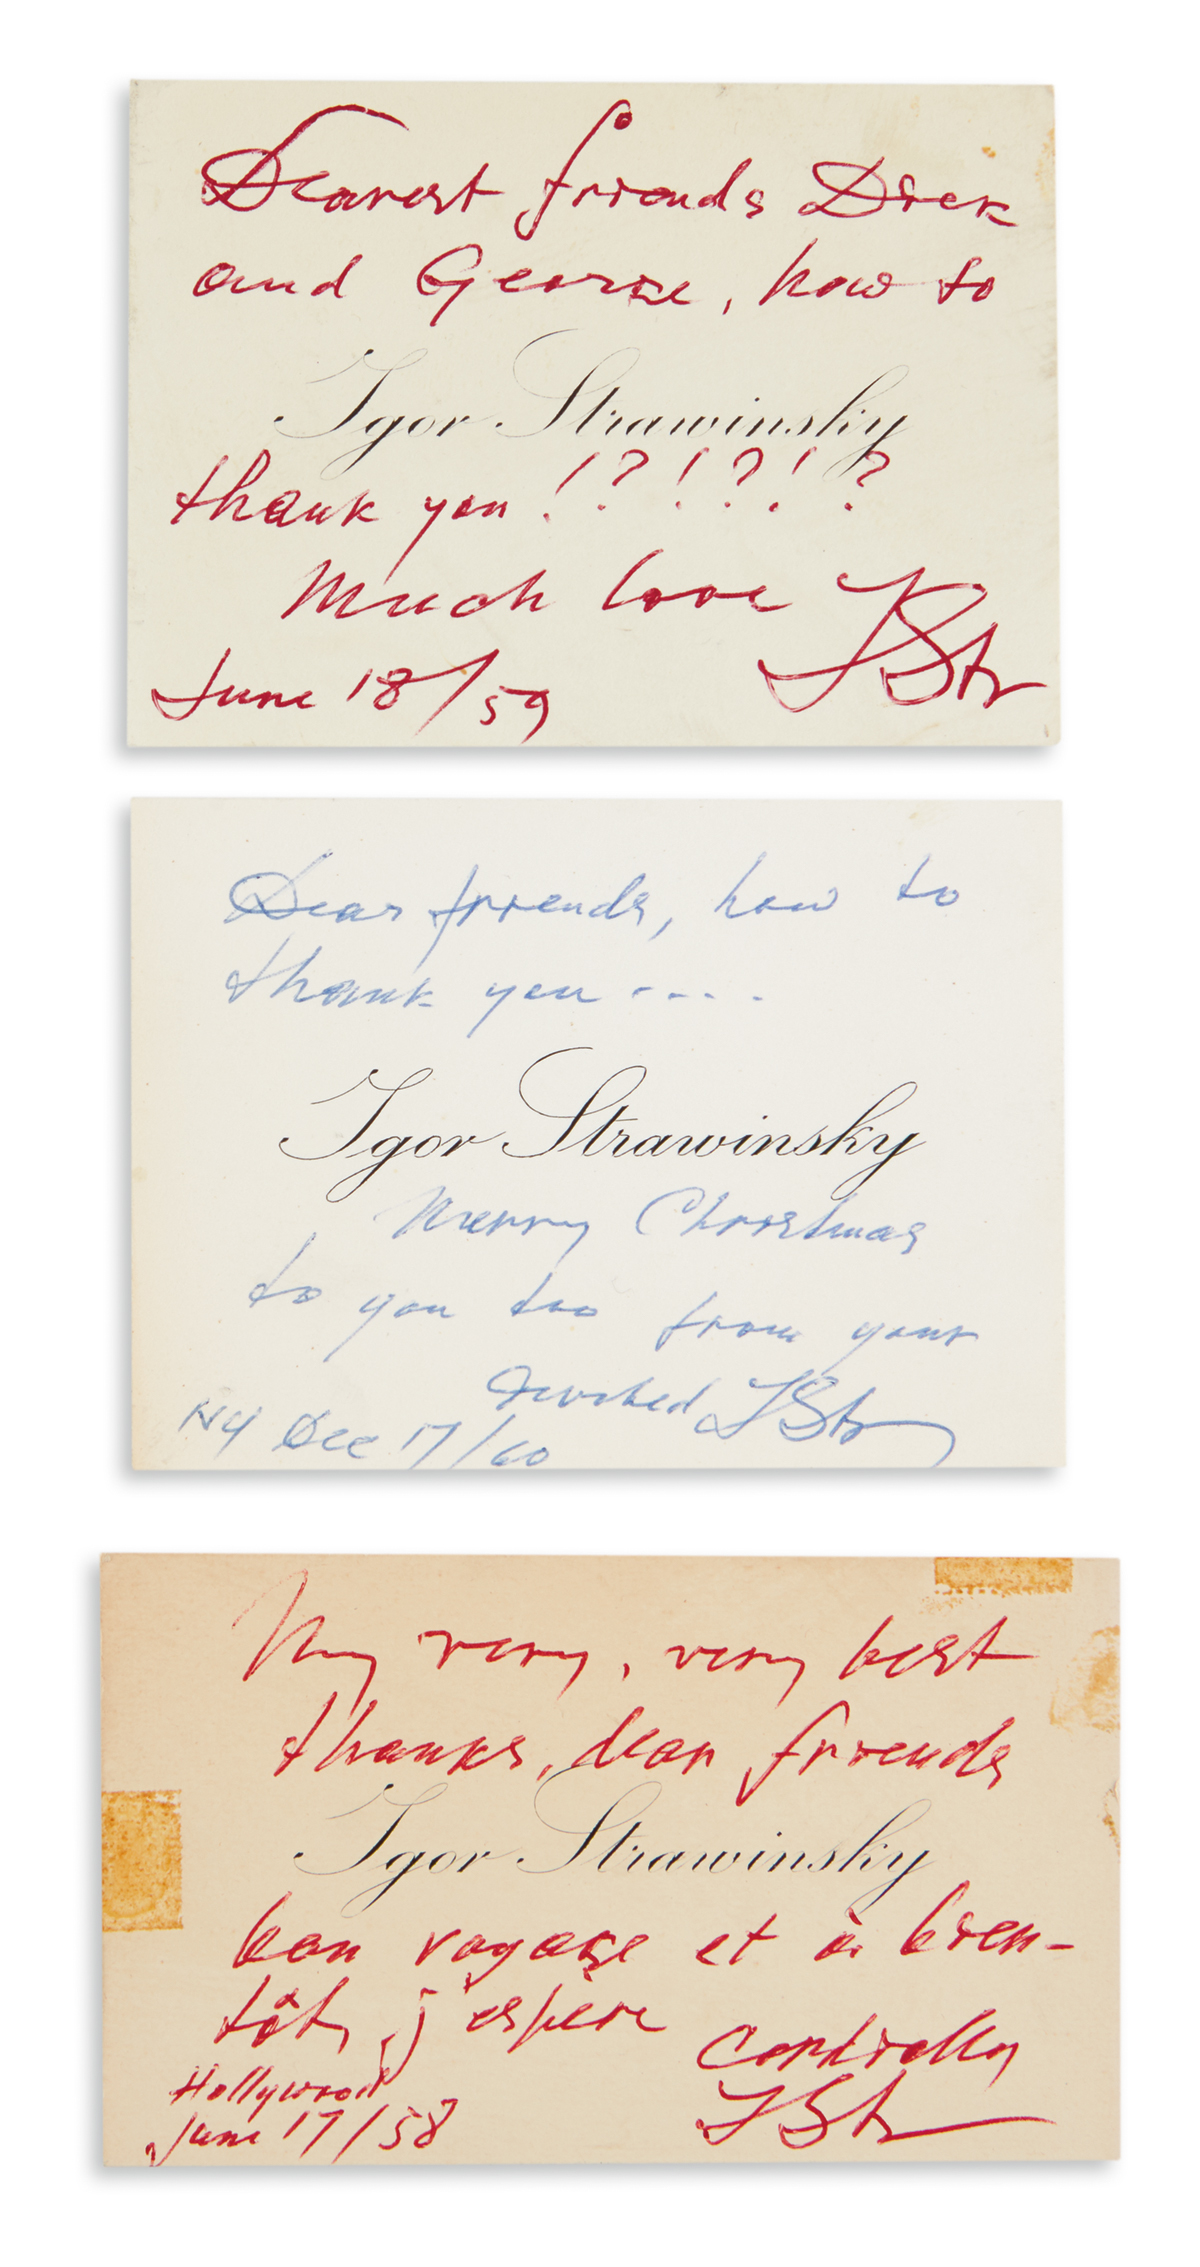 Dearest friends Dick
and George, how to
Igor Strawinsky
thank you !?!?!?
Much love IStr
June 18/59
Dear friends, how to
thank you ....
Igor Strawinsky
Merry Christmas
to you too from your
devoted IStr
NY Dec 17/60
My very, very best
thanks, dear friends
Igor Strawinsky
bon voyage et à bien-
tôt, j'espère
Cordially
Hollywood
IStr
June 17/58